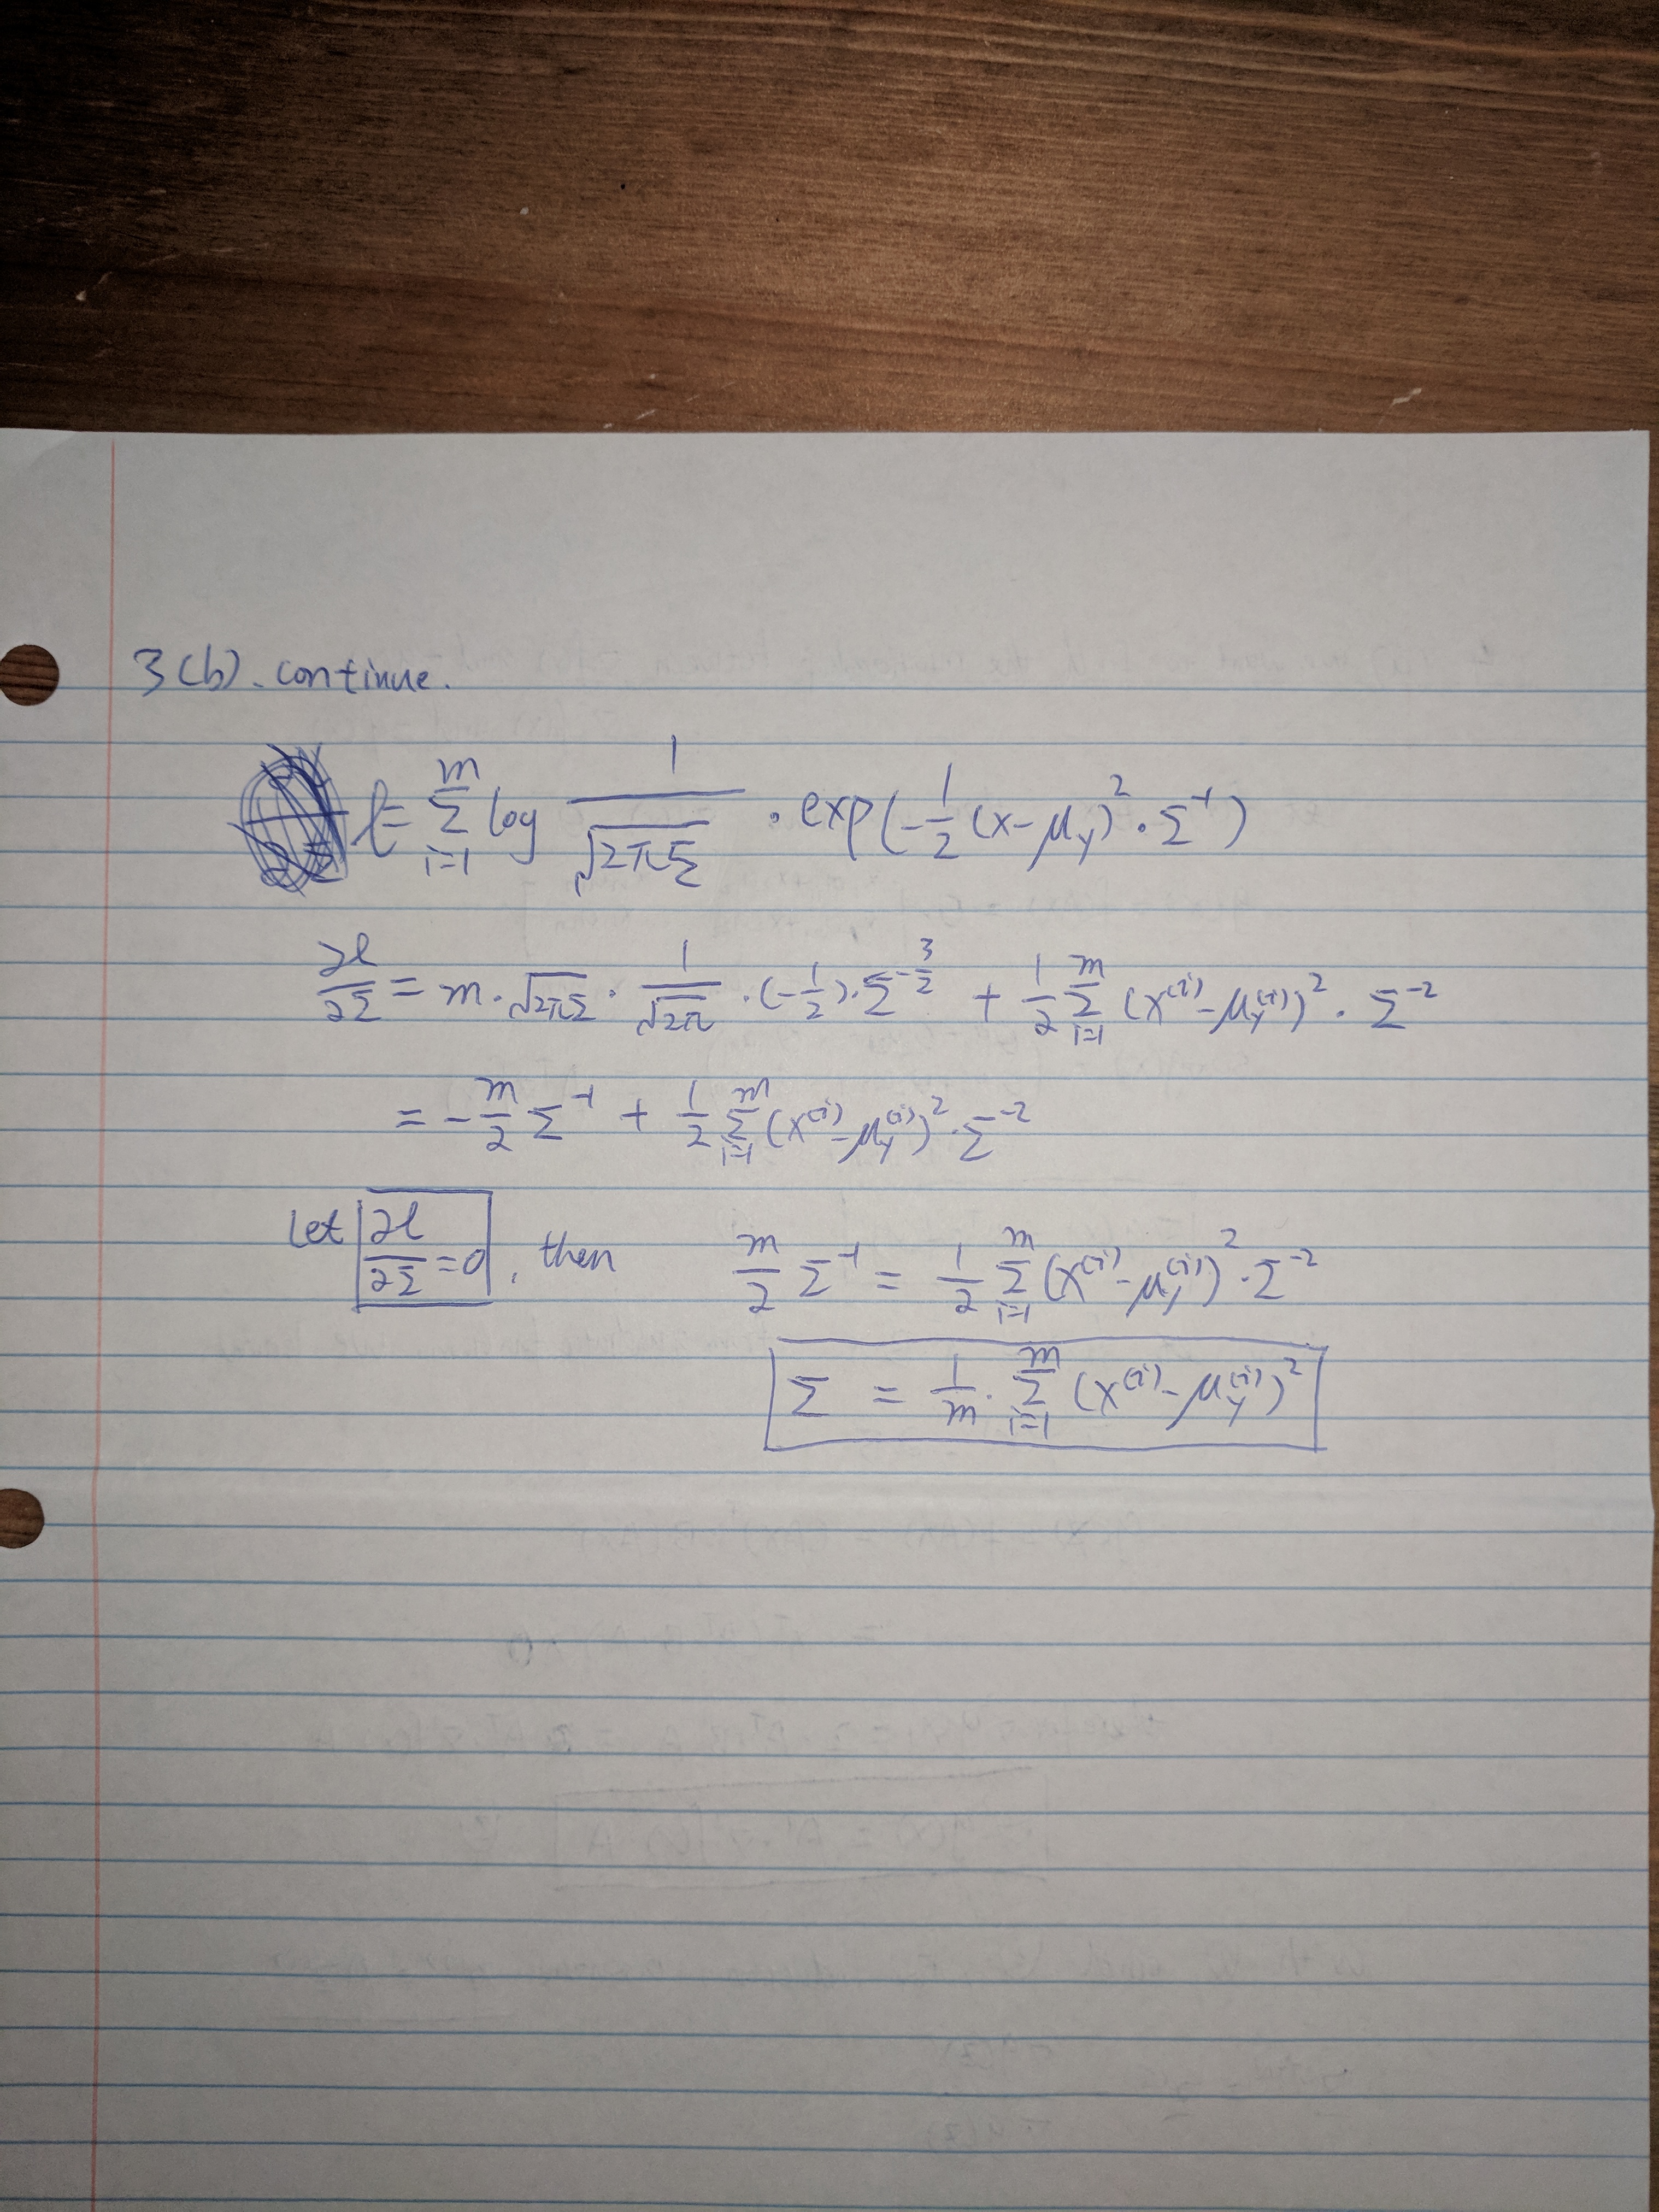 3(b). continue.
ℓ = Σ_{i=1}^{m} log 1/√(2πΣ) · exp(-1/2 (x-μ_y)² · Σ⁻¹)
∂ℓ/∂Σ = m · √(2πΣ) · 1/√(2π) · (-1/2) · Σ^{-3/2} + 1/2 Σ_{i=1}^{m} (x^{(i)} - μ_y^{(i)})² · Σ⁻²
= - m/2 Σ⁻¹ + 1/2 Σ_{i=1}^{m} (x^{(i)} - μ_y^{(i)})² · Σ⁻²
Let ∂ℓ/∂Σ = 0, then m/2 Σ⁻¹ = 1/2 Σ_{i=1}^{m} (x^{(i)} - μ_y^{(i)})² · Σ⁻²
Σ = 1/m · Σ_{i=1}^{m} (x^{(i)} - μ_y^{(i)})²